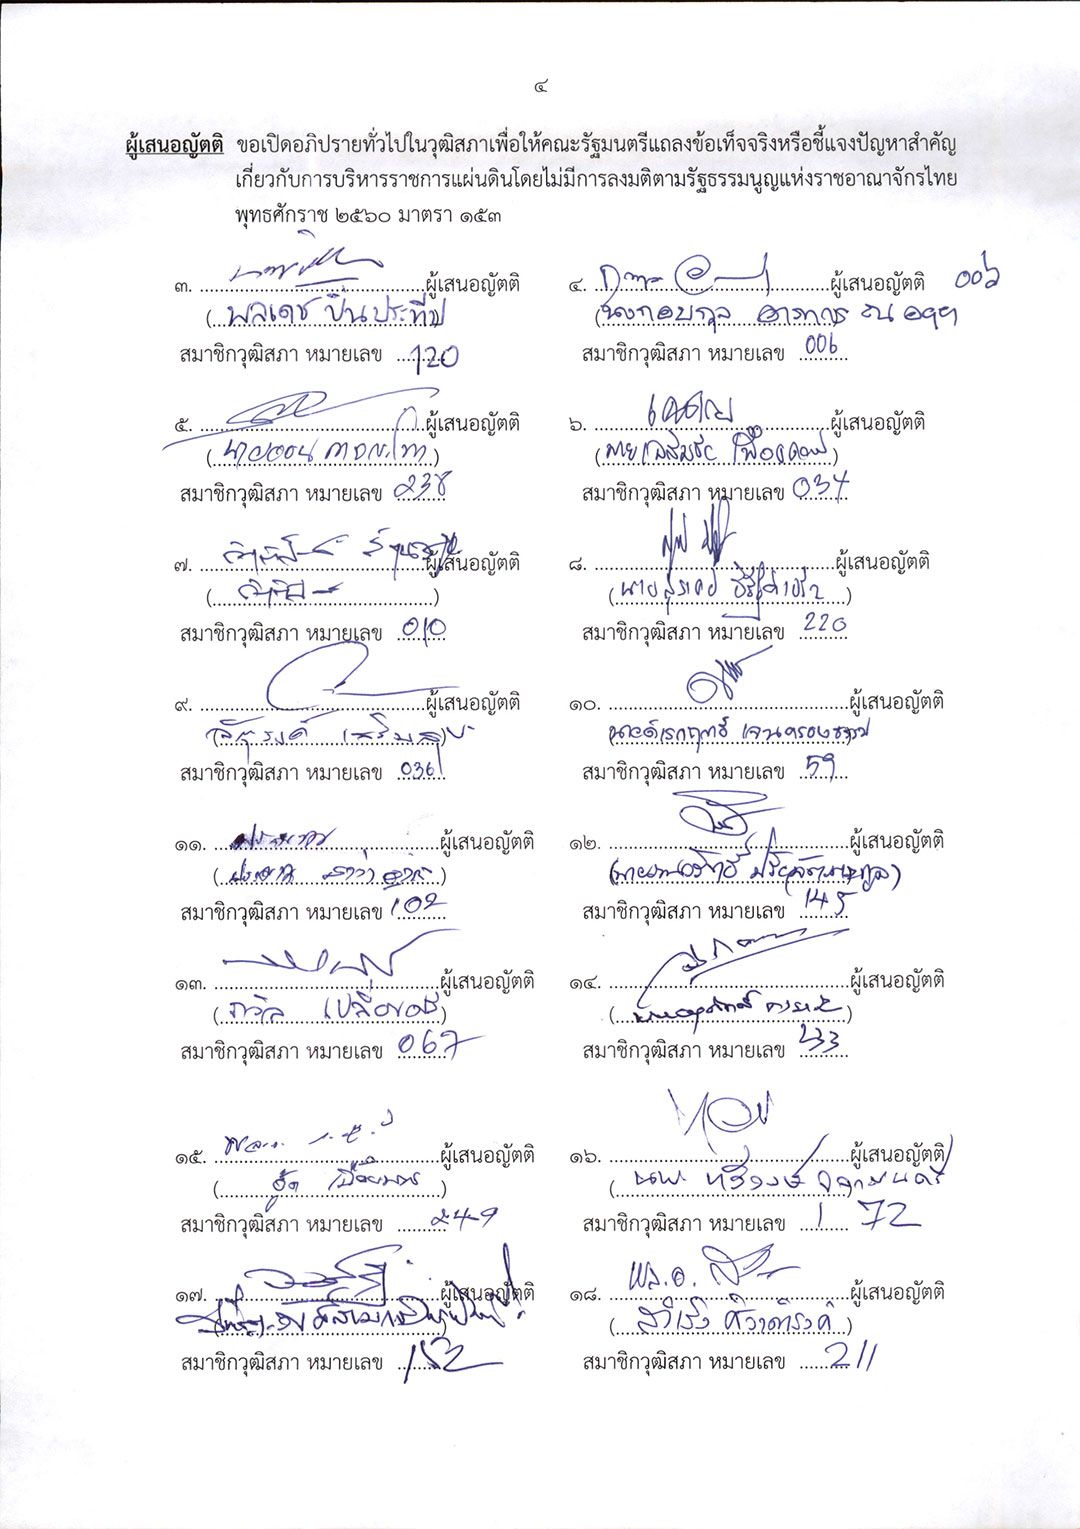 ๔
ผู้เสนอญัตติ ขอเปิดอภิปรายทั่วไปในวุฒิสภาเพื่อให้คณะรัฐมนตรีแถลงข้อเท็จจริงหรือชี้แจงปัญหาสำคัญ
เกี่ยวกับการบริหารราชการแผ่นดินโดยไม่มีการลงมติตามรัฐธรรมนูญแห่งราชอาณาจักรไทย
พุทธศักราช ๒๕๖๐ มาตรา ๑๕๓
๓. ผู้เสนอญัตติ ๔. ผู้เสนอญัตติ 006
(พลเดช ปิ่นประทีป) (นางกอบกุล อาภากร ณ อยุธยา
สมาชิกวุฒิสภา หมายเลข 120 สมาชิกวุฒิสภา หมายเลข 006
๕. ผู้เสนอญัตติ ๖. ผู้เสนอญัตติ
(นายออน กาจกระโทก) (นายเฉลิมชัย เฟื่องคอน)
สมาชิกวุฒิสภา หมายเลข 238 สมาชิกวุฒิสภา หมายเลข 034
๗. ผู้เสนอญัตติ ๘. ผู้เสนอญัตติ
( ) (นายสุรเดช จิรัฐิติเจริญ)
สมาชิกวุฒิสภา หมายเลข 010 สมาชิกวุฒิสภา หมายเลข 220
๙. ผู้เสนอญัตติ ๑๐. ผู้เสนอญัตติ
(จัตุรงค์ เสริมสุข) (นายดิเรกฤทธิ์ เจนครองธรรม)
สมาชิกวุฒิสภา หมายเลข 036 สมาชิกวุฒิสภา หมายเลข 59
๑๑. ผู้เสนอญัตติ ๑๒. ผู้เสนอญัตติ
( ) ( )
สมาชิกวุฒิสภา หมายเลข 102 สมาชิกวุฒิสภา หมายเลข 145
๑๓. ผู้เสนอญัตติ ๑๔. ผู้เสนอญัตติ
(ถวิล เปลี่ยนศรี) ( )
สมาชิกวุฒิสภา หมายเลข 067 สมาชิกวุฒิสภา หมายเลข 233
๑๕. ผู้เสนอญัตติ ๑๖. ผู้เสนอญัตติ
(อู้ด เบื้องบน) (นพ. ทวีวงษ์ จุลกมนตรี
สมาชิกวุฒิสภา หมายเลข 249 สมาชิกวุฒิสภา หมายเลข 72
๑๗. ผู้เสนอญัตติ ๑๘. พล.อ. ผู้เสนอญัตติ
(สำเริง ศิวาดำรงค์)
สมาชิกวุฒิสภา หมายเลข 152 สมาชิกวุฒิสภา หมายเลข 211